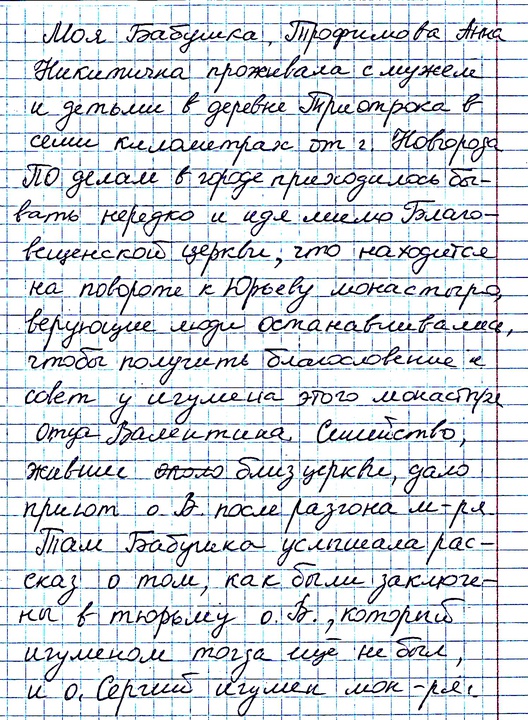 Моя Бабушка, Трофимова Анна
Никитична проживала с мужем
и детьми в деревне Триотрока в
семи километрах от г. Новгорода
ПО делам в городе приходилось бы-
вать нередко и идя мимо Благо-
вещенской церкви, что находится
на повороте к Юрьеву монастырю,
верующие люди останавливались,
чтобы получить благословение и
совет у игумена этого монастыря
отца Валентина. Семейство,
жившее около близ церкви, дало
приют о. В. после разгона м-ря.
Там Бабушка услышала рас-
сказ о том, как были заключе-
ны в тюрьму о. В., который
игуменом тогда ещё не был,
и о. Сергий игумен мон-ря.